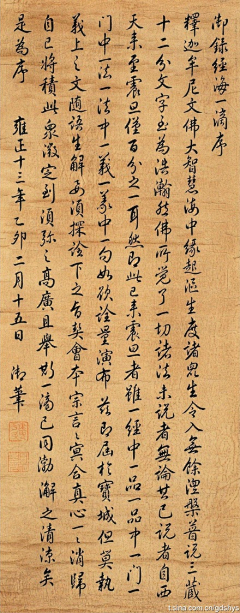 御錄經海一滴序
釋迦牟尼文佛大智慧海中緣起漚生度諸眾生令入無餘涅槃普說三藏
十二分文字至為浩瀚然佛所覺了一切諸法未說者無論其已說者自西
天來至震旦僅百分之一耳然即此已來震旦者雖一經中一品一品中一門一
門中一法一法中一義一義中一句如欲詮量演布茲即屆於寶城但莫執
義上之文隨語生解須探詮下之旨契會本宗言言冥合真心一一消歸
自己將積此眾微定到須彌之高廣且舉斯一滴已同渤澥之清涼矣
是為序 雍正十三年乙卯二月十五日 御筆
t.sina.com.cn/gdshys